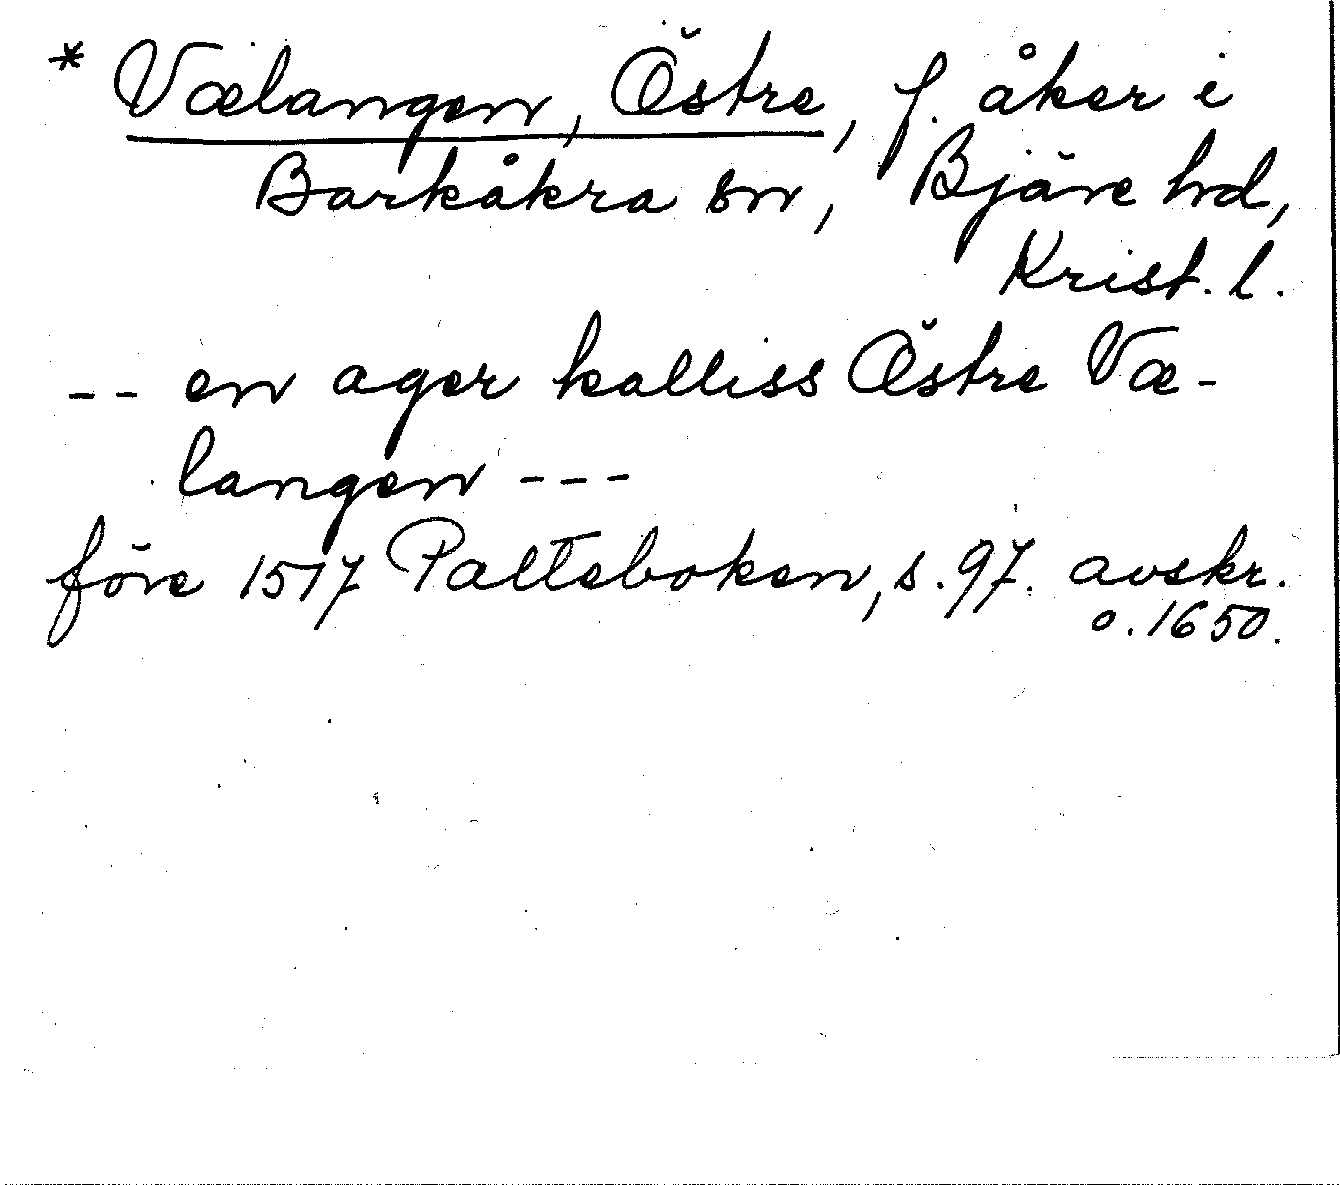 * Vælangen, Östre, f. åker i
Barkåkra sn, Bjäre hd,
Krist. l.
-- en ager kalliss Östre Væ-
langen ---
före 1517 Palteboken, s. 97. avskr.
o. 1650.